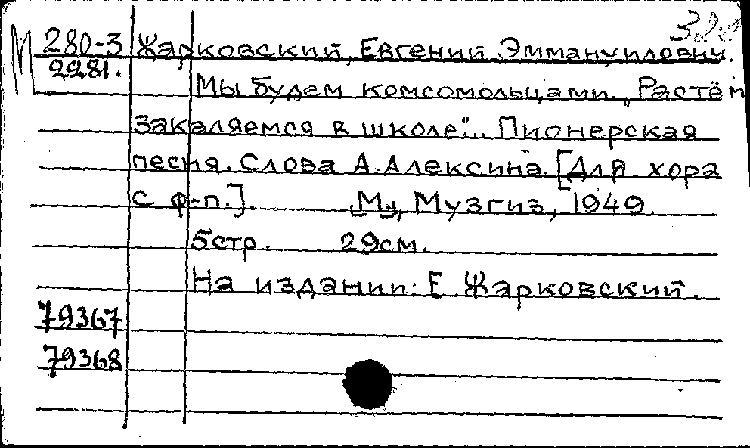 М 280-3 Жарковский, Евгений Эммануилович.
2281.
Мы будем комсомольцами. „Растём
закаляемся в школе"... Пионерская
песня. Слова А. Алексина. [Для хора
с ф-п.]. М., Музгиз, 1949
5 стр. 29 см.
На издании: Е Жарковский.
79367
79368